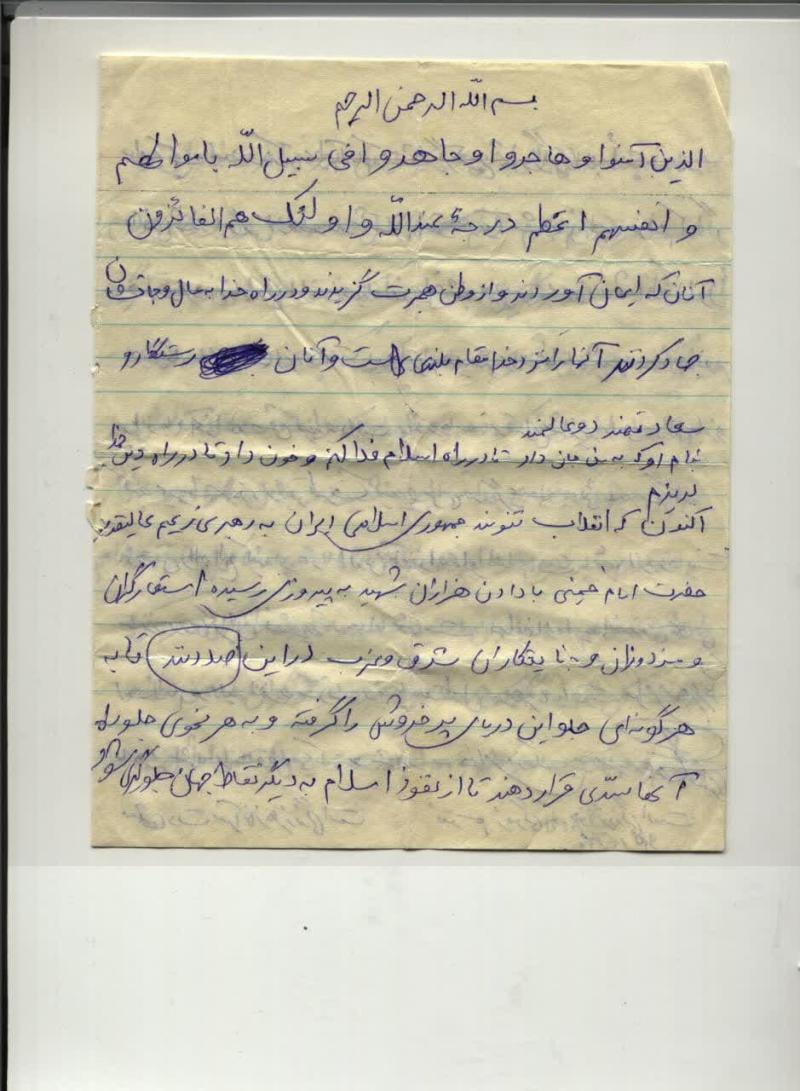 بسم الله الرحمن الرحیم
الذین آمنوا و هاجروا و جاهدوا فی سبیل الله باموالهم
و انفسهم اعظم درجة عندالله و اولئک هم الفائزون
آنان که ایمان آوردند و از وطن هجرت گزیدند و در راه خدا به مال و جانشان
جهاد کردند آنها را نزد خدا مقام بلندی است و آنان رستگار و
سعادتمند دو عالمند
بنام او که به من جان داد تا در راه اسلام فدا کنم و خون داد تا در راه دین خدا
بریزم
اکنون که انقلاب تنومند جمهوری اسلامی ایران به رهبری زعیم عالیقدر
حضرت امام خمینی با دادن هزاران شهید به پیروزی رسیده استعمارگران
و مزدوران و جنایتکاران شرق و غرب در این صددند تا به
هر گونه‌ای جلو این دریای پر خروش را گرفته و به هر نحوی جلو راه
آنها سدّی قرار دهند تا از نفوذ اسلام به دیگر نقاط جهان جلوگیری شود و